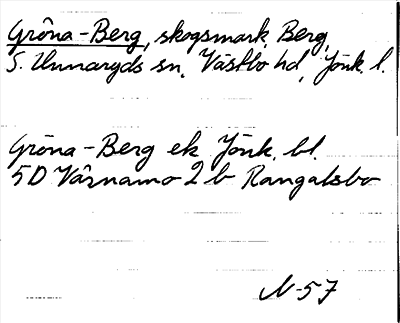 Gröna-Berg, skogsmark, Berg,
S. Unnaryds sn, Västbo hd, Jönk. l.
Gröna-Berg ek Jönk. bl.
5D Värnamo 2 b Rangalsbo
N-57